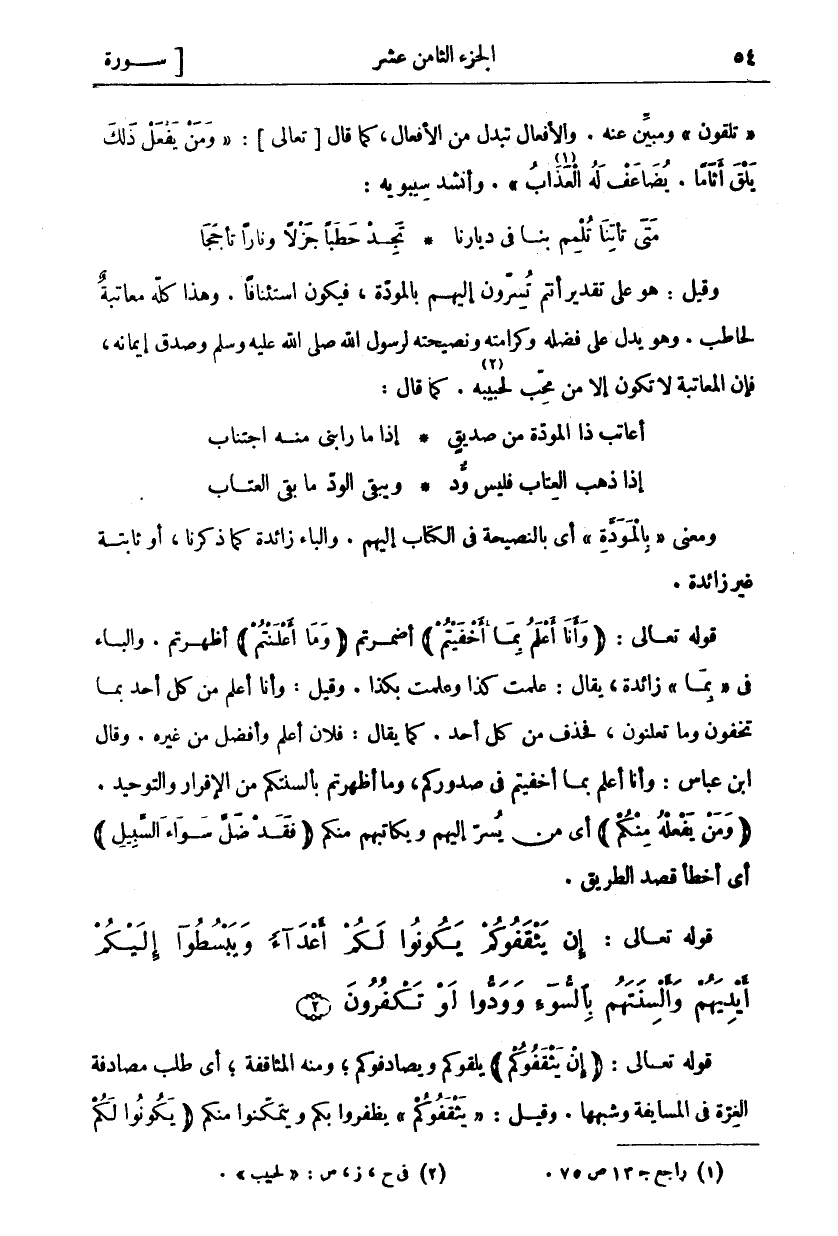 ٥٤ الجزء الثامن عشر [ ســورة
« تلقون » ومبيِّن عنه . والأفعال تبدل من الأفعال، كما قال [ تعالى ] : « وَمَنْ يَفْعَلْ ذَلِكَ
يَلْقَ أَثَامًا . يُضَاعَفْ لَهُ الْعَذَابُ » (١) . وأنشد سيبويه :
مَتَى تأتِنَا تُلْمِم بنـا فى ديارنا * تَجِـدْ حَطَباً جَزْلاً وناراً تأججَا
وقيل : هو على تقدير أنتم تُسِرّون إليهـم بالمودّة ، فيكون استئنافًا . وهذا كلّه معاتبةٌ
لحاطب . وهو يدل على فضله وكرامته ونصيحته لرسول الله صلى الله عليه وسلم وصدق إيمانه ،
فإن المعاتبة لا تكون إلا من محبّ لحبيبه (٢) . كما قال :
أعاتب ذا المودّة من صديقٍ * إذا ما رابنى منـه اجتناب
إذا ذهب العِتاب فليس وُدّ * ويبقى الودّ ما بقى العتـاب
ومعنى « بِالْمَوَدَّةِ » أى بالنصيحة فى الكتاب إليهم . والباء زائدة كما ذكرنا ، أو ثابتـة
غير زائدة .
قوله تعـالى : ﴿ وَأَنَا أَعْلَمُ بِمَـا أَخْفَيْتُمْ ﴾ أضمـرتم ﴿ وَمَا أَعْلَنْتُمْ ﴾ أظهـرتم . والبـاء
فى « بِمَـا » زائدة ، يقال : علمت كذا وعلمت بكذا . وقيل : وأنا أعلم من كل أحد بمـا
تخفون وما تعلنون ، فحذف من كل أحد . كما يقال : فلان أعلم وأفضل من غيره . وقال
ابن عباس : وأنا أعلم بمـا أخفيتم فى صدوركم، وما أظهرتم بألسنتكم من الإقرار والتوحيد .
﴿ وَمَنْ يَفْعَلْهُ مِنْكُمْ ﴾ أى من يُسرّ إليهم ويكاتبهم منكم ﴿ فَقَـدْ ضَلَّ سَـوَاءَ السَّبِيلِ ﴾
أى أخطأ قصد الطريق .
قوله تعـالى : إِن يَثْقَفُوكُمْ يَكُونُوا لَكُمْ أَعْدَآءً وَيَبْسُطُوٓا إِلَيْكُمْ
أَيْدِيَهُمْ وَأَلْسِنَتَهُم بِالسُّوٓءِ وَوَدُّوا لَوْ تَكْفُرُونَ ٢
قوله تعـالى : ﴿ إِنْ يَثْقَفُوكُمْ ﴾ يلقوكم ويصادفوكم ؛ ومنه المثاقفة ؛ أى طلب مصادفة
الغِرّة فى المسايفة وشبهها . وقيـل : « يَثْقَفُوكُمْ » يظفروا بكم ويتمكّنوا منكم ﴿ يَكُونُوا لَكُمْ
(١) راجع جـ ١٣ ص ٧٥ . (٢) فى ح ، ز ، س : « لحبيب » .